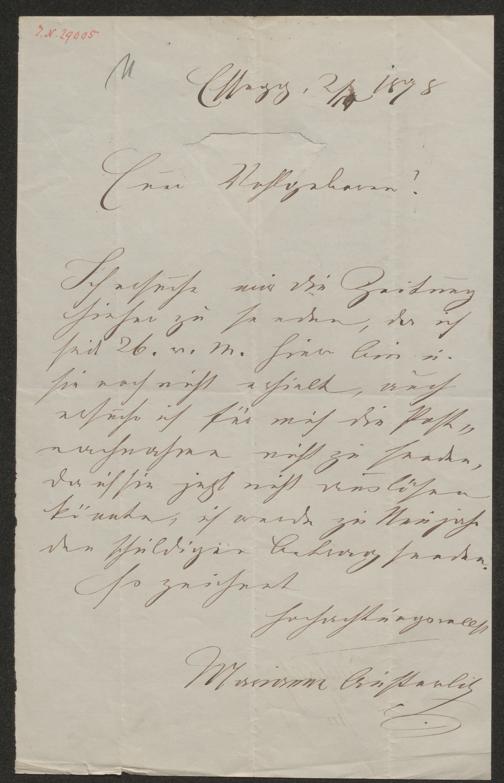 J.N. 29005
Essegg, 2/ 1898
Euer Wohlgeboren!
Ich ersuche mir die Zeitung
hieher zu senden, da ich
seit 26. v. M. hier bin u.
sie noch nicht erhielt, auch
ersuche ich für mich die Post-
nachnahme nicht zu senden,
da ich sie jetzt nicht auslösen
könnte, ich werde zu Neujahr
den schuldigen Betrag senden.
So zeichnet
hochachtungsvollst
Marianne Austerlitz